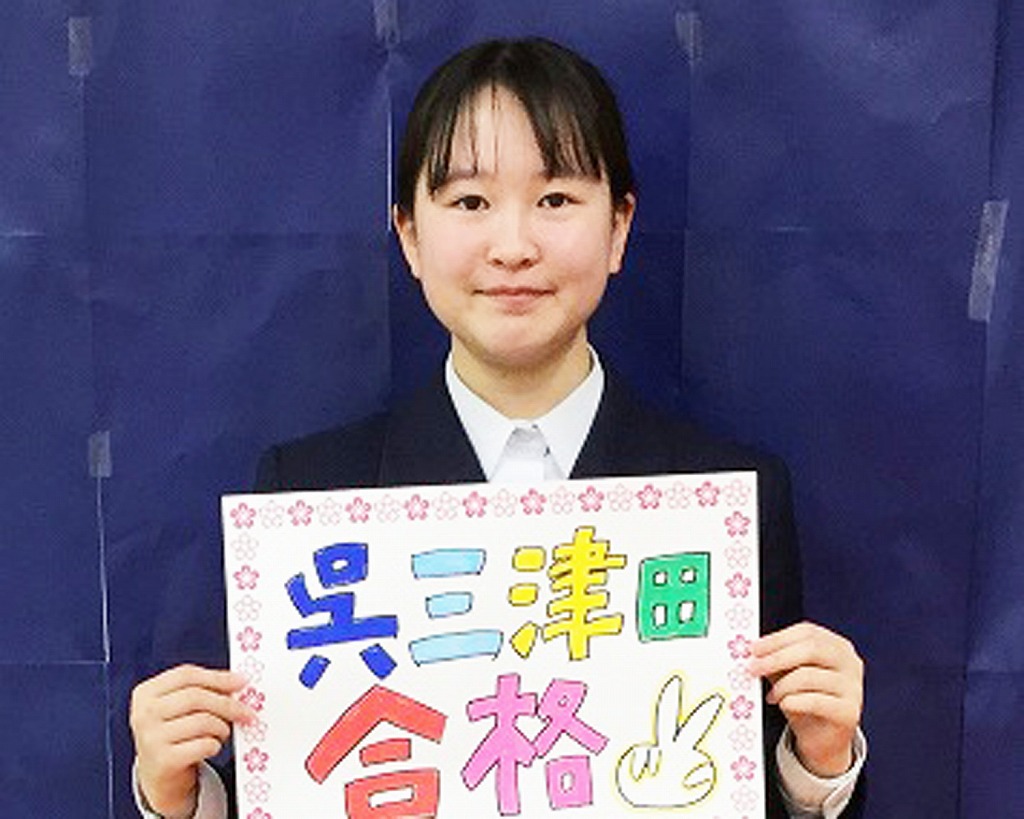 呉三津田
合格